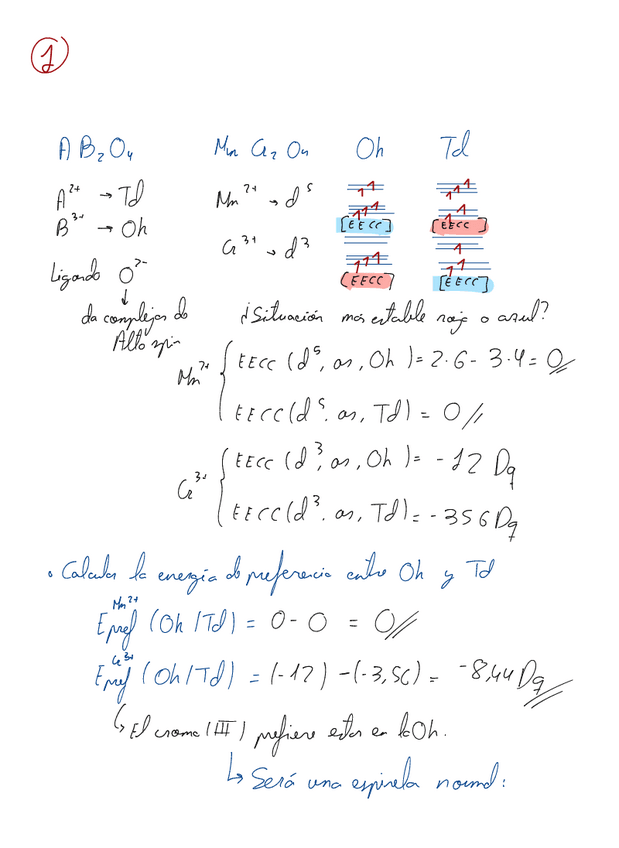 1
AB₂O₄ Mn Cr₂ O₄ Oh Td
A²⁺ → Td Mn²⁺ → d⁵
B³⁺ → Oh [EECC] [EECC]
Cr³⁺ → d³
Ligando O²⁻ [EECC] [EECC]
↓
da complejos de ¿Situación mas estable roja o azul?
Alto spin
Mn²⁺ { EECC (d⁵, as, Oh) = 2·6 - 3·4 = 0
EECC (d⁵, as, Td) = 0
Cr³⁺ { EECC (d³, as, Oh) = -12 Dq
EECC (d³, as, Td) = -356 Dq
• Calcular la energía de preferencia entre Oh y Td
Mn²⁺
Epref (Oh/Td) = 0 - 0 = 0
Cr³⁺
Epref (Oh/Td) = (-12) - (-3,56) = -8,44 Dq
↳ El cromo (III) prefiere estar en la Oh.
↳ Será una espinela normal: